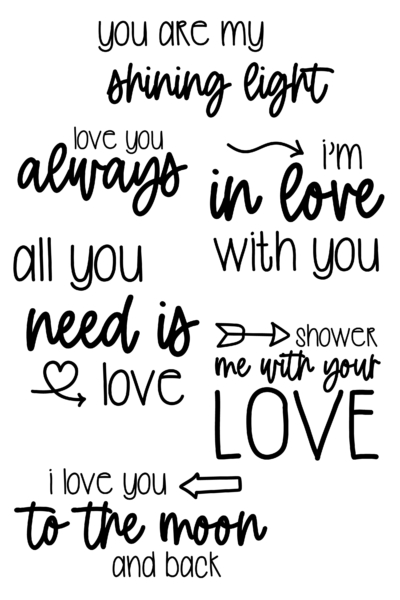 you are my
shining light
love you
always
i'm
in love
with you
all you
need is
love
shower
me with your
LOVE
i love you
to the moon
and back